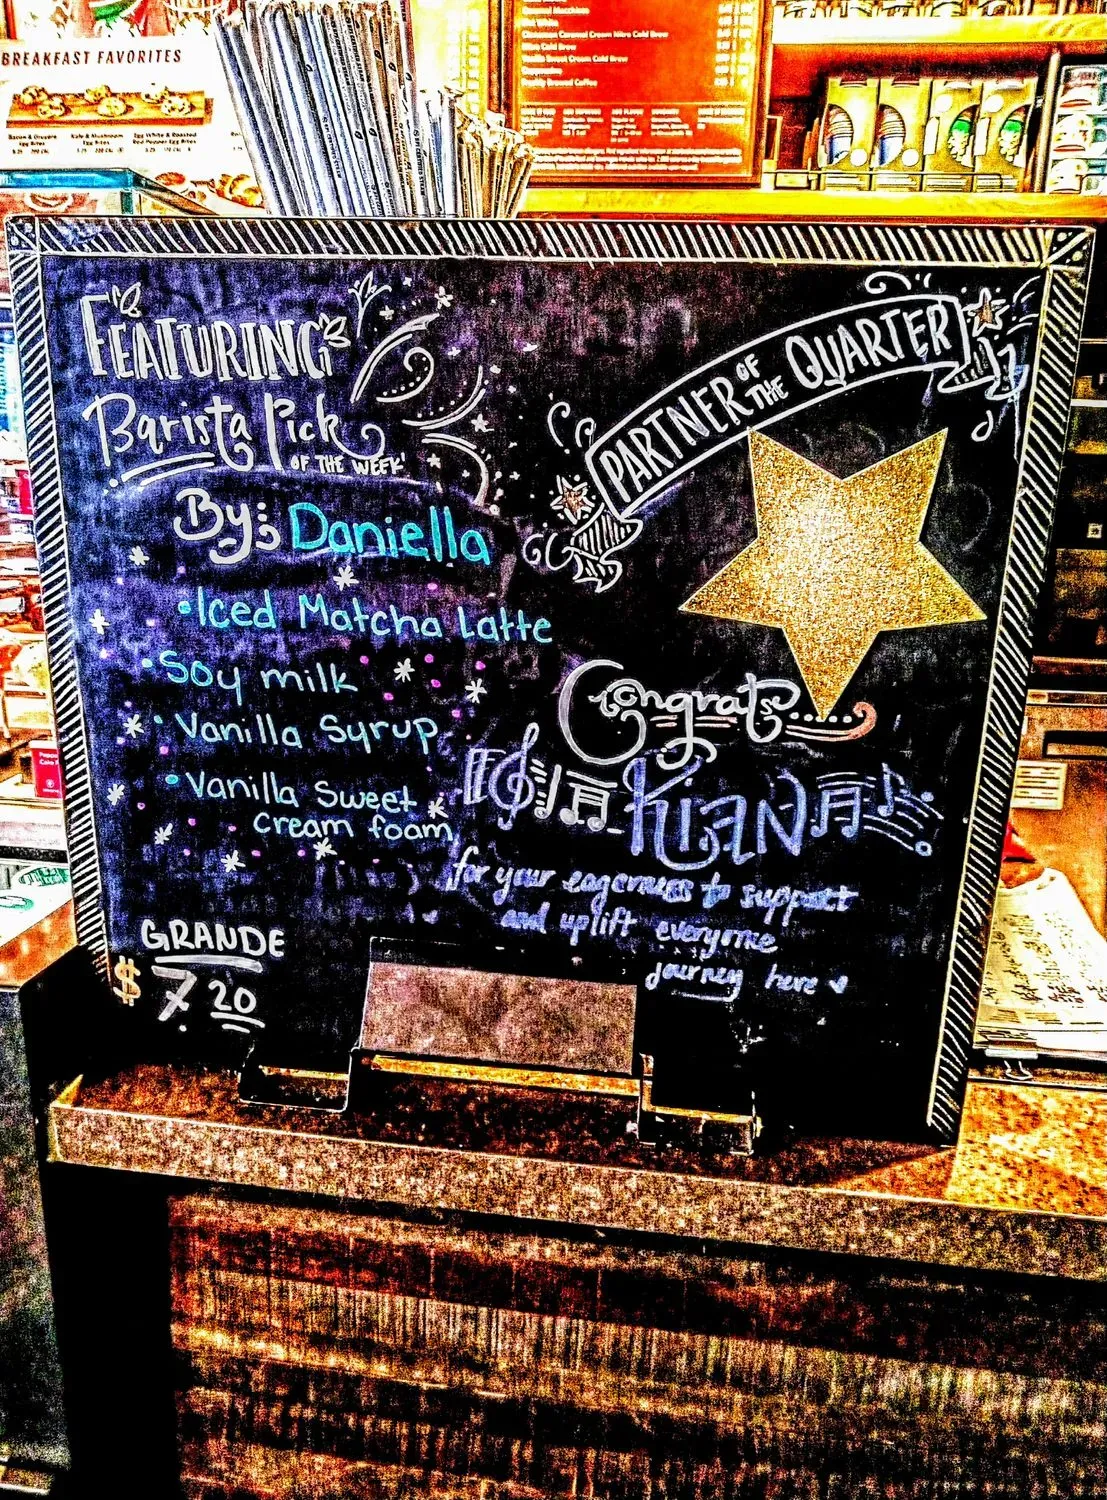 BREAKFAST FAVORITES
Bacon & Gruyere
Egg Bites
Kale & Mushroom
Egg Bites
Egg White & Roasted
Red Pepper Egg Bites
Cinnamon Caramel Cream Nitro Cold Brew
Nitro Cold Brew
Vanilla Sweet Cream Cold Brew
Iced Coffee
FEATURING
Barista Pick
OF THE WEEK
By: Daniella
•Iced Matcha Latte
•Soy milk
•Vanilla Syrup
•Vanilla Sweet
cream foam
GRANDE
$ 7.20
PARTNER OF THE QUARTER
Congrats
KiAN
for your eagerness to support
and uplift everyone
journey here